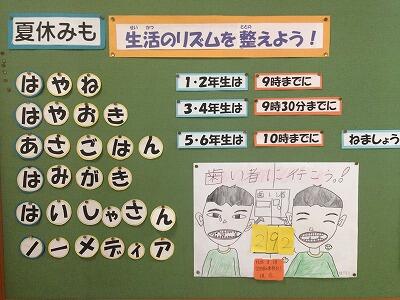 夏休みも
生活のリズムを整えよう！
せいかつ
ととの
はやね
はやおき
あさごはん
はみがき
はいしゃさん
ノーメディア
1・2年生は 9時までに
3・4年生は 9時30分までに
5・6年生は 10時までに ねましょう
歯い者に行こう。!
292